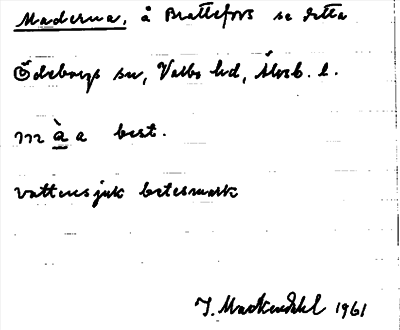 Maderna, å Brattefors se detta
Ödeborgs sn, Valbo hd, Älvsb. l.
mà a best.
vattensjuk betesmark
1961